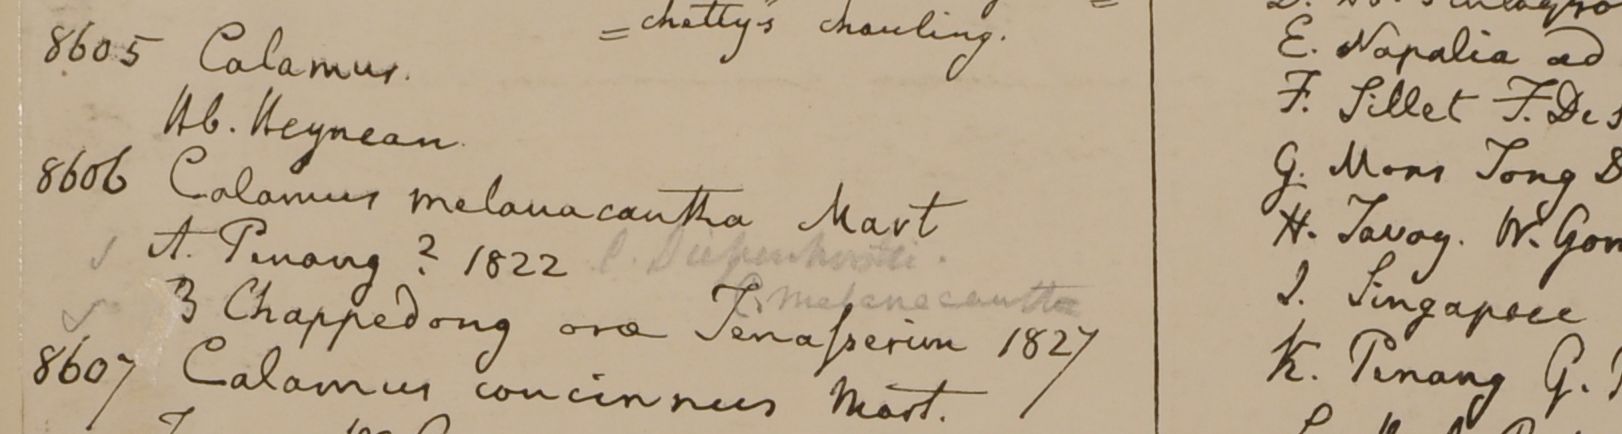 = chetty's chauling.
8605 Calamus.
Hb. Heynean.
8606 Calamus melanacantha Mart
A. Pinang ? 1822 C. Diepenhorstii.
C. melanacantha
B Chappedong oræ Tenasserim 1827
8607 Calamus concinnus Mart.
E. Napalia ad
F. Sillet F. De S
G. Mons Tong D
H. Tavoy. W. Gom
I. Singapore
K. Pinang G.